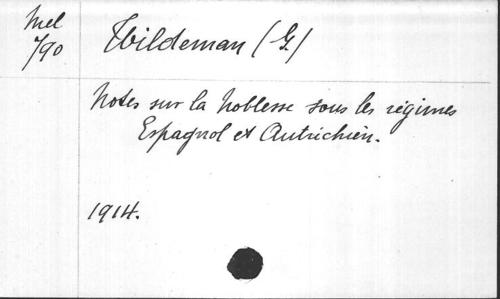 Mel
790
Wildeman (G)
Notes sur la Noblesse sous les régimes
Espagnol et Autrichien.
1914.